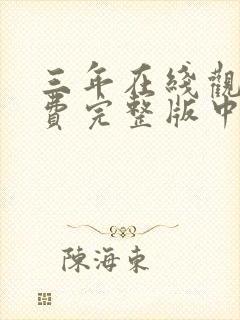 三年在綫觀
費完整版中
陳海東